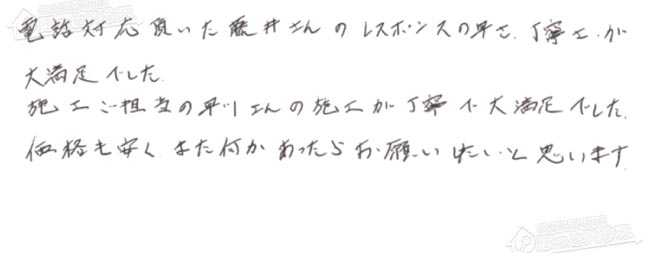 電話対応頂いた藤井さんのレスポンスの早さ、丁寧さ、が
大満足でした。
施工ご担当の早川さんの施工が丁寧で大満足でした。
価格も安く、また何かあったらお願いしたいと思います